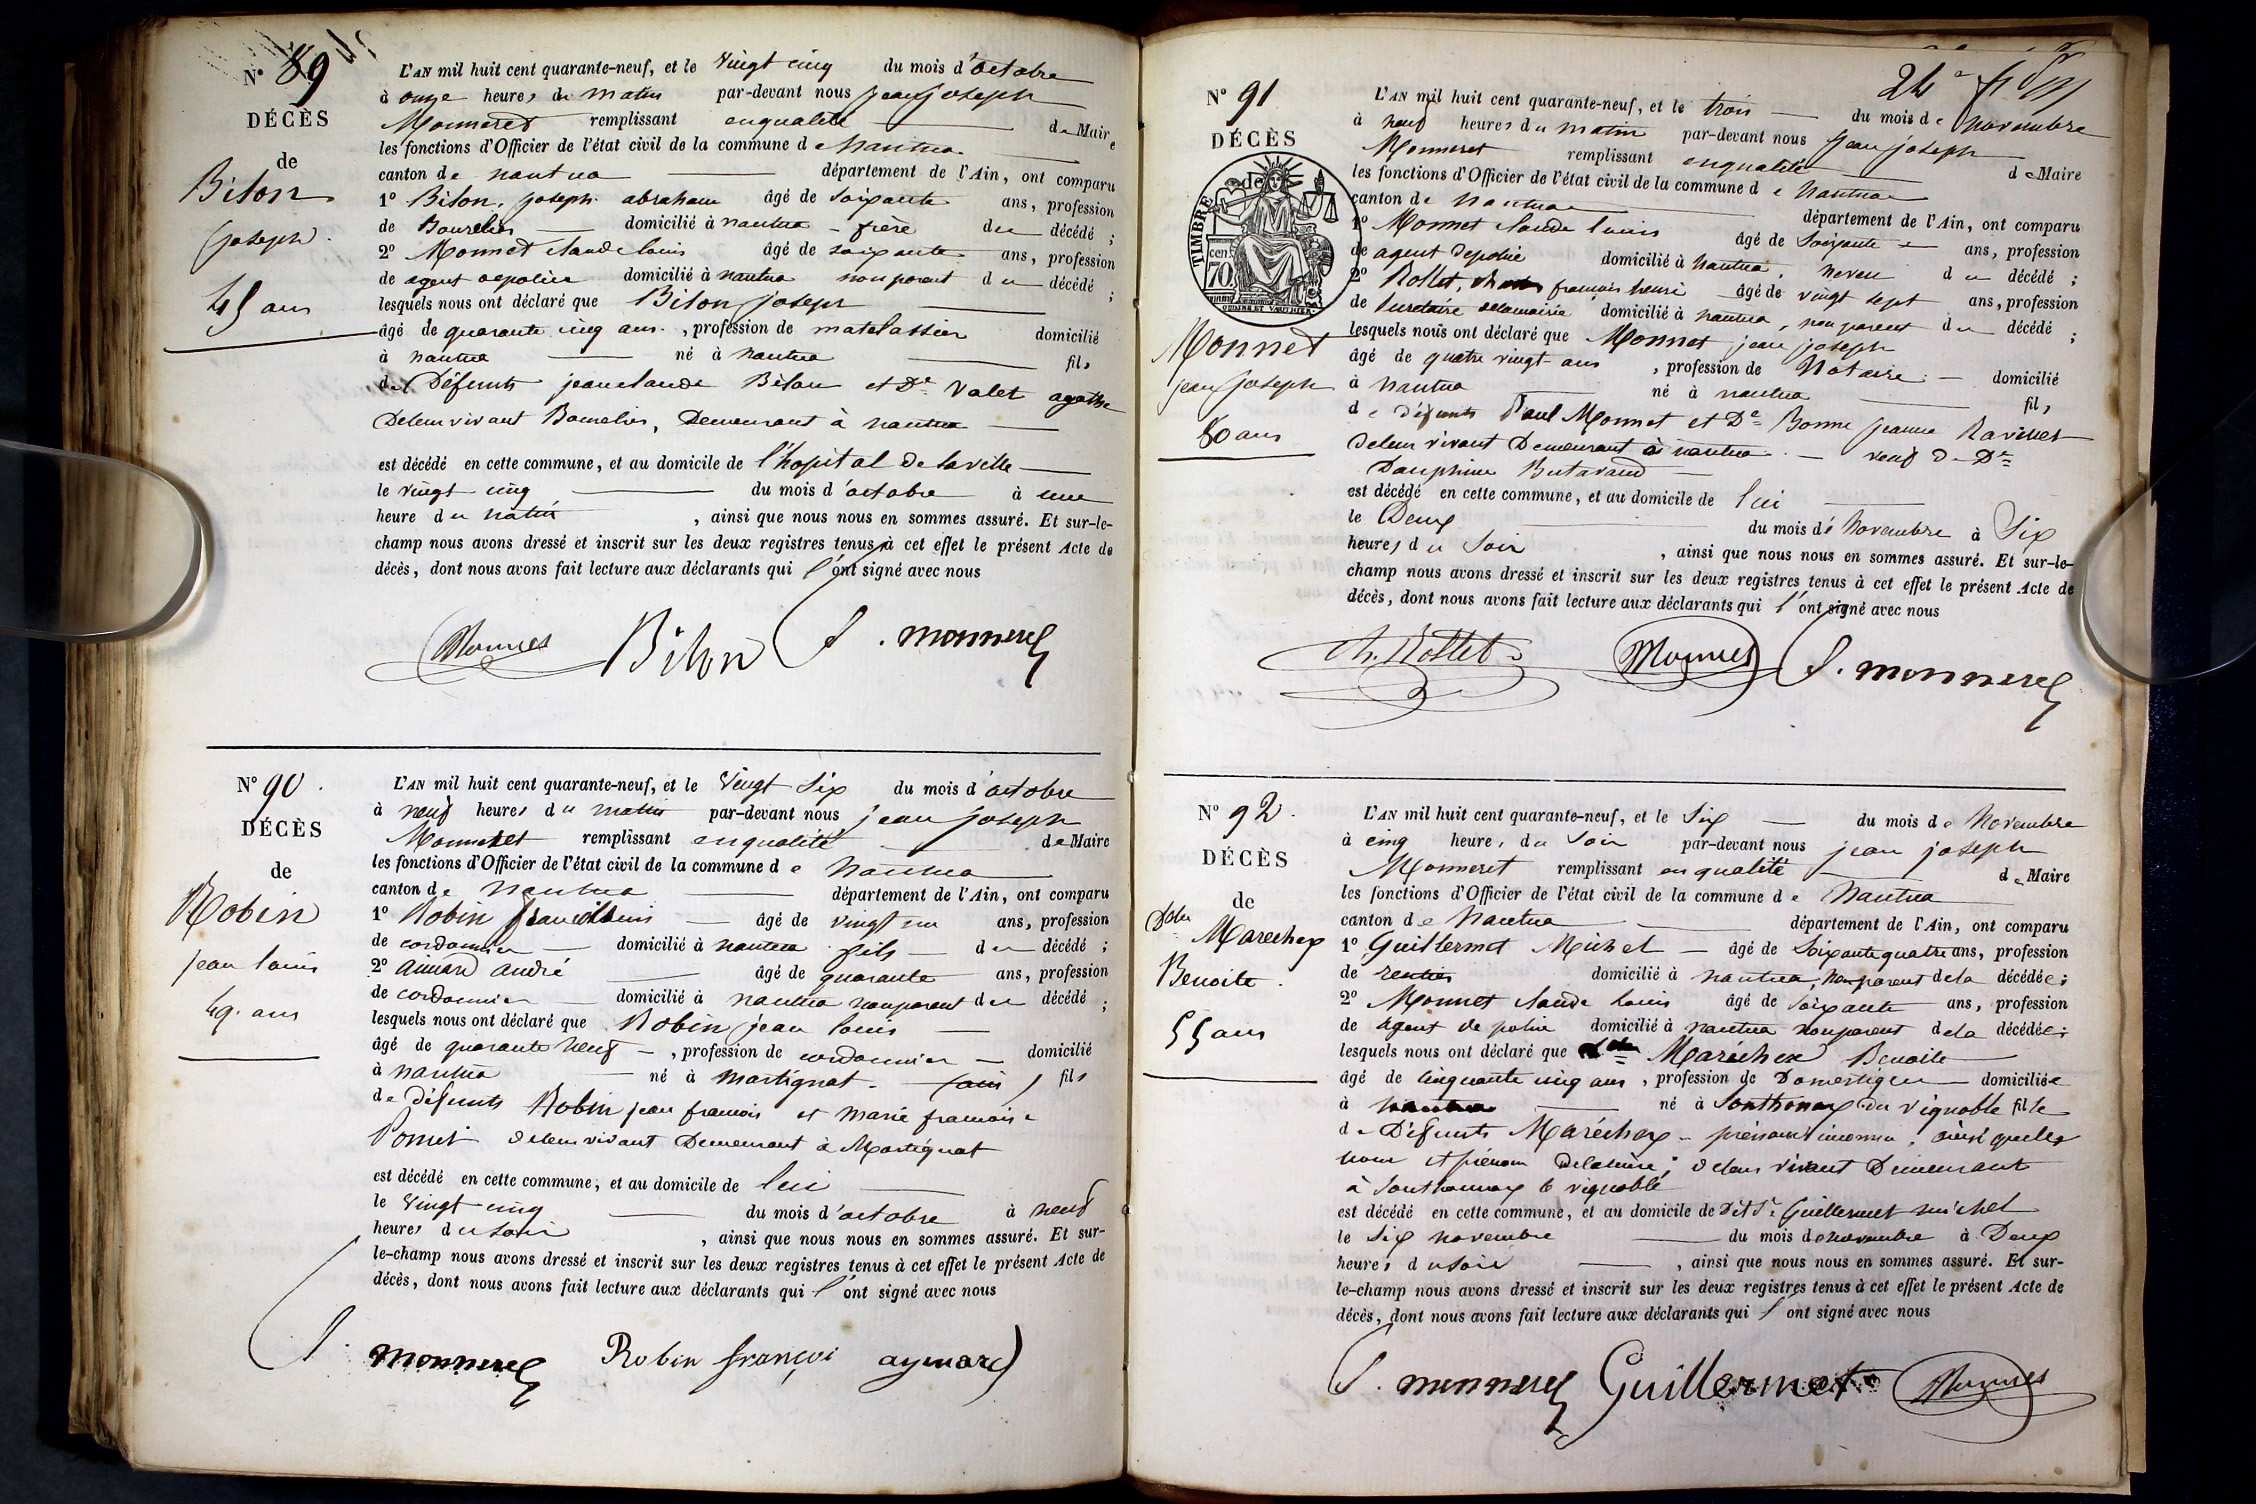 N° 89
DÉCÈS
de
Biton
(joseph)
45 ans
L'AN mil huit cent quarante-neuf, et le vingt cinq du mois d'octobre
à onze heures du matin par-devant nous jean joseph
Monneret remplissant en qualité de Maire
les fonctions d'Officier de l'état civil de la commune de Nantua
canton de nantua département de l'Ain, ont comparu
1° Biton, joseph abraham âgé de soixante ans, profession
de Bourelier domicilié à nantua - frère du décédé ;
2° Monnet claude louis âgé de soixante ans, profession
de agent de police domicilié à nantua non parent du décédé ;
lesquels nous ont déclaré que Biton joseph
âgé de quarante cinq ans, profession de matelassier domicilié
à nantua né à nantua fils
de Défunts jean claude Biton et De Valet agathe
De leur vivant Bourelier, Demeurant à nantua
est décédé en cette commune, et au domicile de l'hopital de la ville
le vingt cinq du mois d'octobre à une
heure du matin, ainsi que nous nous en sommes assuré. Et sur-le-
champ nous avons dressé et inscrit sur les deux registres tenus à cet effet le présent Acte de
décès, dont nous avons fait lecture aux déclarants qui l'ont signé avec nous
Monnet Biton J. monneret
N° 90
DÉCÈS
de
Robin
jean louis
49. ans
L'AN mil huit cent quarante-neuf, et le vingt six du mois d'octobre
à neuf heures du matin par-devant nous jean joseph
Monneret remplissant en qualité de Maire
les fonctions d'Officier de l'état civil de la commune de Nantua
canton de Nantua département de l'Ain, ont comparu
1° Robin âgé de vingt un ans, profession
de cordonnier domicilié à nantua fils du décédé ;
2° aimard andré âgé de quarante ans, profession
de cordonnier domicilié à nantua non parent du décédé ;
lesquels nous ont déclaré que Robin jean louis
âgé de quarante neuf, profession de cordonnier domicilié
à nantua né à Martignat (ain) fils
de Défunts Robin jean francois et Marie francoise
de leur vivant Demeurant à Martignat
est décédé en cette commune, et au domicile de lui
le vingt cinq du mois d'octobre à neuf
heures du soir, ainsi que nous nous en sommes assuré. Et sur-
le-champ nous avons dressé et inscrit sur les deux registres tenus à cet effet le présent Acte de
décès, dont nous avons fait lecture aux déclarants qui l'ont signé avec nous
J. monneret Robin françoi aymard
N° 91
DÉCÈS
de
TIMBRE
70 cent
Monnet
jean joseph
80 ans
L'AN mil huit cent quarante-neuf, et le trois du mois de novembre
à neuf heures du matin par-devant nous jean joseph
Monneret remplissant en qualité de Maire
les fonctions d'Officier de l'état civil de la commune de Nantua
canton de Nantua département de l'Ain, ont comparu
1° Monnet claude louis âgé de soixante ans, profession
de agent de police domicilié à nantua, neveu du décédé ;
2° Rollet, francois henri âgé de vingt sept ans, profession
de secretaire de la mairie domicilié à nantua, non parent du décédé ;
lesquels nous ont déclaré que Monnet jean joseph
âgé de quatre vingt ans, profession de Notaire domicilié
à nantua né à nantua fils
de défunts Paul Monnet et De Bonne jeanne Ravinet
de leur vivant Demeurant à nantua - veuf de De
Dauphine
est décédé en cette commune, et au domicile de lui
le Deux du mois de Novembre à Six
heures du soir, ainsi que nous nous en sommes assuré. Et sur-le-
champ nous avons dressé et inscrit sur les deux registres tenus à cet effet le présent Acte de
décès, dont nous avons fait lecture aux déclarants qui l'ont signé avec nous
h. Rollet Monnet J. monneret
N° 92.
DÉCÈS
de
Marechex
Benoite
55 ans
L'AN mil huit cent quarante-neuf, et le Six du mois de Novembre
à cinq heures du soir par-devant nous jean joseph
Monneret remplissant en qualité de Maire
les fonctions d'Officier de l'état civil de la commune de Nantua
canton de Nantua département de l'Ain, ont comparu
1° Guillermet Michel âgé de soixante quatre ans, profession
de rentier domicilié à nantua, non parent de la décédée ;
2° Monnet claude louis âgé de soixante ans, profession
de agent de police domicilié à nantua non parent de la décédée ;
lesquels nous ont déclaré que Maréchex Benoite
âgé de cinquante cinq ans, profession de Domestique domiciliée
à nantua né à Sonthonax du vignoble fille
de Défunts Maréchex - prénoms inconnu, ainsi que les
nom et prénom de la mère ; de leur vivant Demeurant
à Sonthonnax le vignoble
est décédé en cette commune, et au domicile de Dit Sr Guillermet michel
le Six novembre du mois de novembre à Deux
heures du soir, ainsi que nous nous en sommes assuré. Et sur-
le-champ nous avons dressé et inscrit sur les deux registres tenus à cet effet le présent Acte de
décès, dont nous avons fait lecture aux déclarants qui l'ont signé avec nous
J. monneret Guillermet Monnet